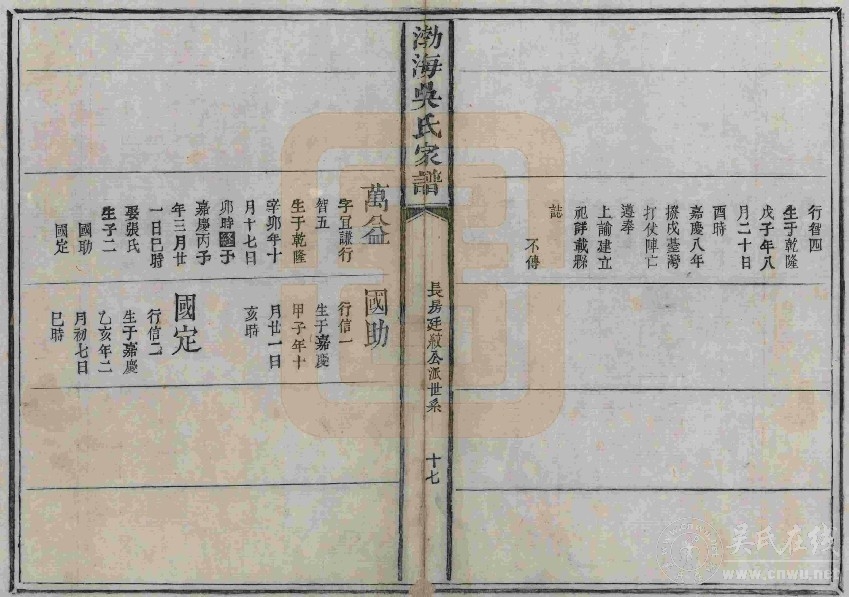 行智四
生于乾隆
戊子年八
月二十日
酉時
嘉慶八年
撥戍臺灣
打仗陣亡
遵奉
上諭建立
祀詳載縣
誌
不傳
渤海吳氏家譜
長房廷敘公派世系
十七
萬益
字宜謙行
智五
生于乾隆
辛卯年十
月十七日
卯時終于
嘉慶丙子
年三月廿
一日巳時
娶張氏
生子二
國助
國定
國助
行信一
生于嘉慶
甲子年十
月廿一日
亥時
國定
行信二
生于嘉慶
乙亥年二
月初七日
巳時
吴氏在线
www.cnwu.net